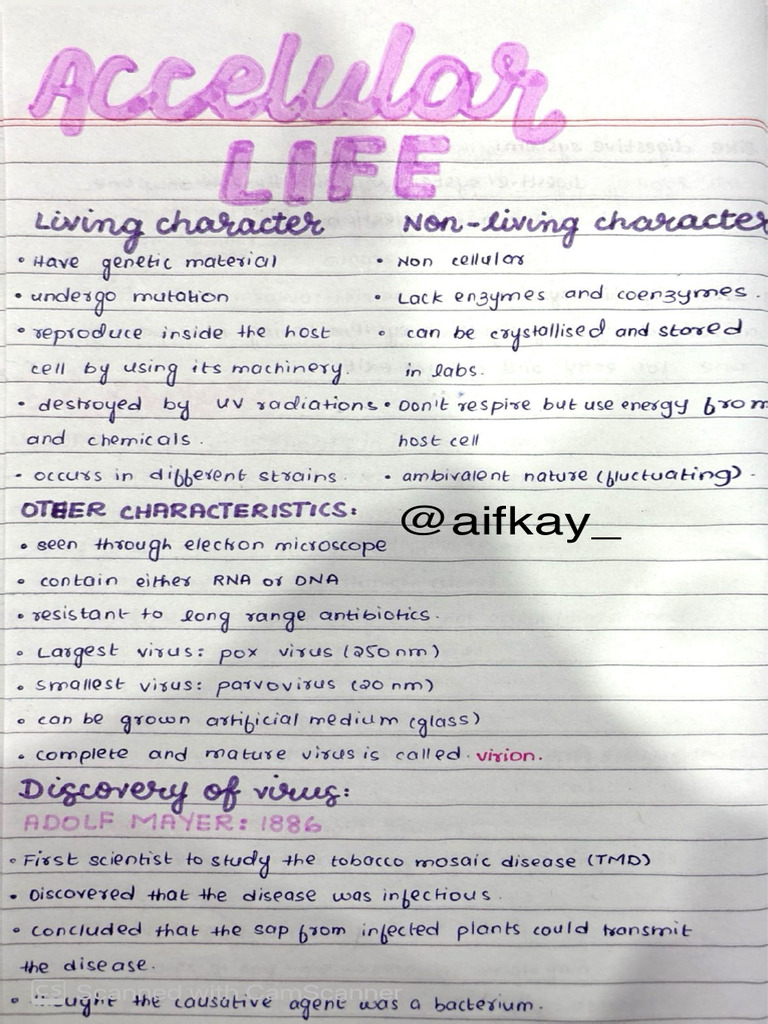 Accelular
LIFE
Living character
Non-living character
• Have genetic material
• undergo mutation
• reproduce inside the host
cell by using its machinery.
• destroyed by UV radiations
and chemicals.
• occurs in different strains.
• Non cellular
• Lack enzymes and coenzymes.
• can be crystallised and stored
in labs.
• Don't respire but use energy from
host cell
• ambivalent nature (fluctuating).
OTHER CHARACTERISTICS:
@aifkay_
• seen through electron microscope
• contain either RNA or DNA
• resistant to long range antibiotics.
• Largest virus: pox virus (250 nm)
• smallest virus: parvovirus (20 nm)
• can be grown artificial medium (glass)
• complete and mature virus is called virion.
Discovery of virus:
ADOLF MAYER: 1886
• First scientist to study the tobacco mosaic disease (TMD)
• Discovered that the disease was infectious.
• concluded that the sap from infected plants could transmit
the disease.
CS Scanned with CamScanner
• the causative agent was a bacterium.